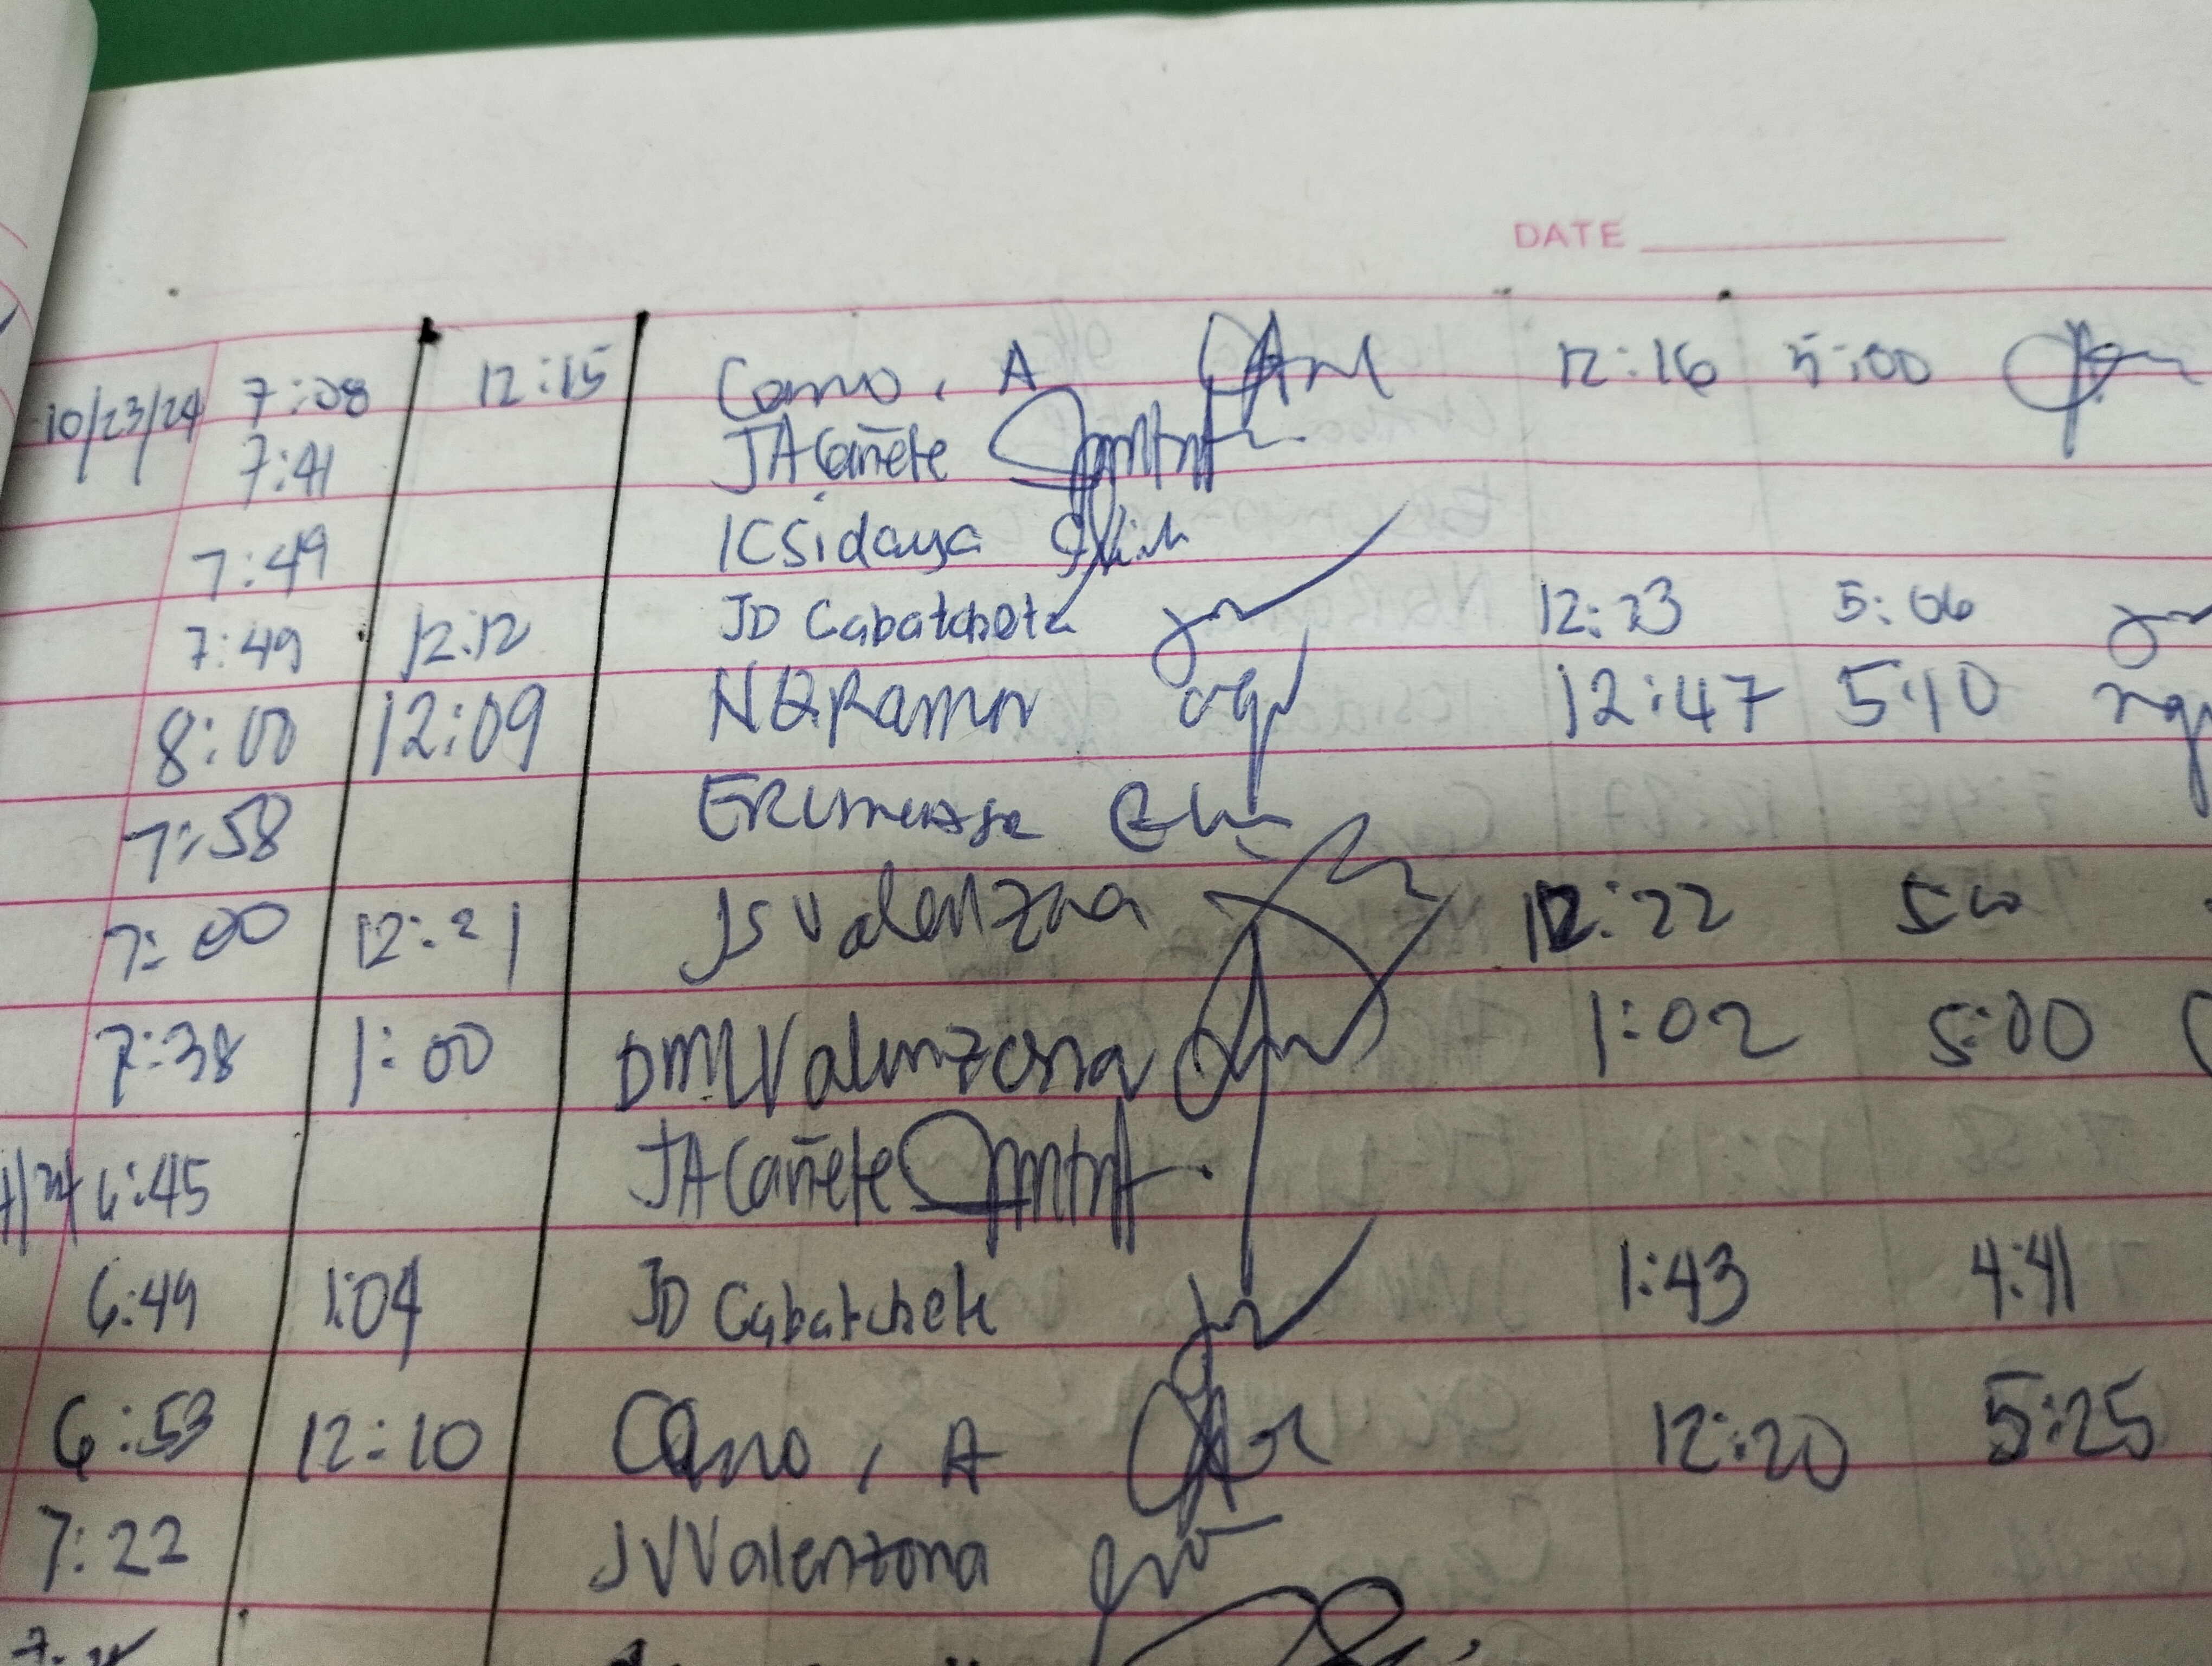 DATE
10/23/24 7:08 12:15 Cano, A 12:16 5:00
7:41 JA Cañete
7:49 ICSidaya
7:49 12:12 JD Cabatchete 12:23 5:06
8:00 12:09 NQRamor 12:47 5:10
7:58
7:00 12:21 JSValenzona 12:22 5:00
7:38 1:00 DMLValenzona 1:02 5:00
6:45 JA Cañete
6:49 1:04 JD Cabatchete 1:43 4:41
6:53 12:10 Cano, A 12:20 5:25
7:22 JVValenzona